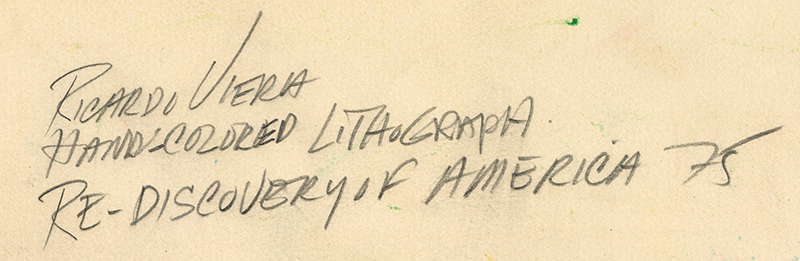 RICARDO VIERA
HAND-COLORED LITHOGRAPH.
RE-DISCOVERY OF AMERICA 75